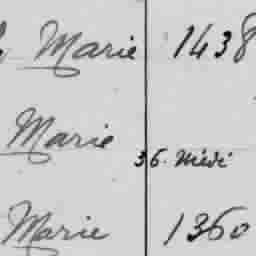 Marie 1438
Marie 36. Miedi
Marie 1360